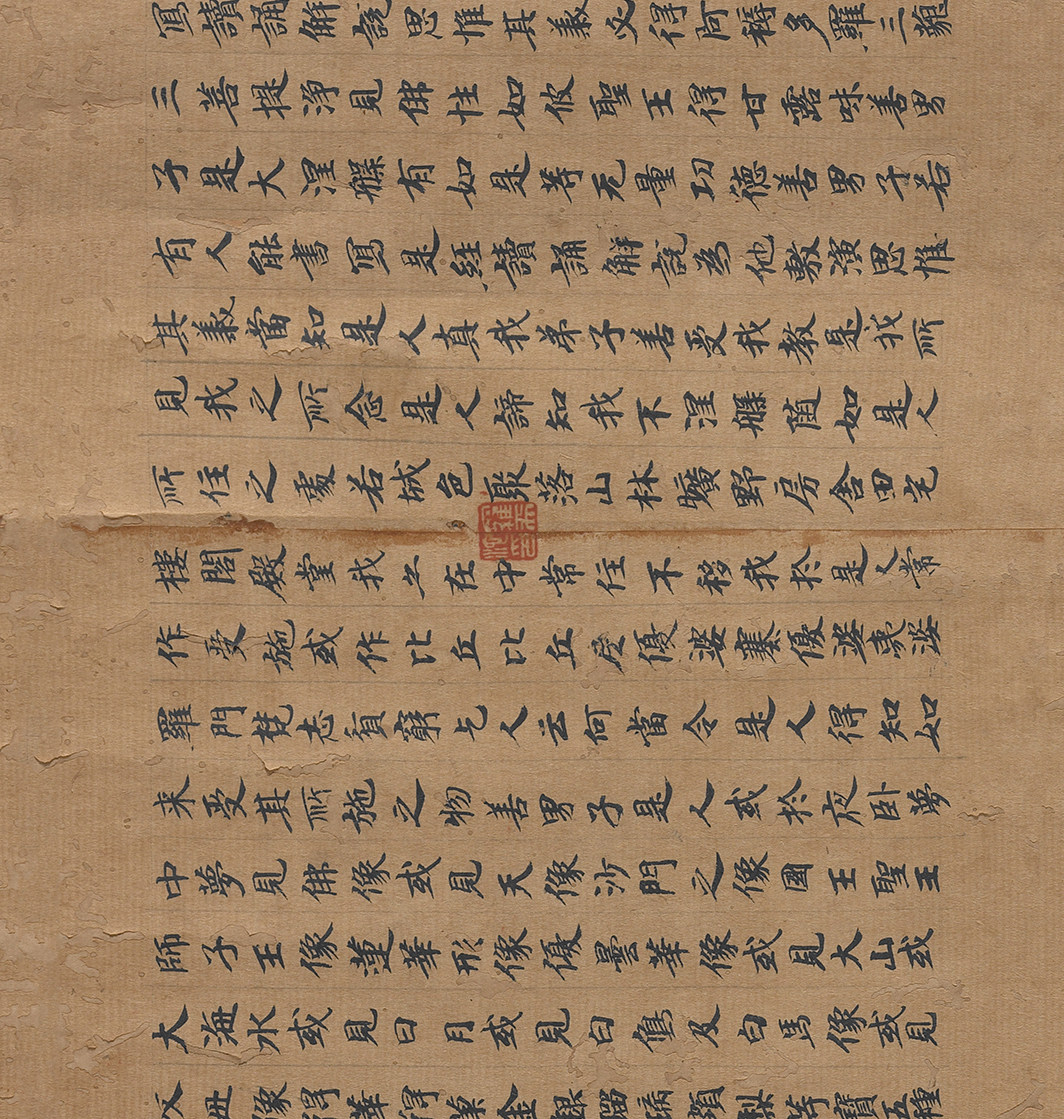 寫讀誦解說思惟其義必得阿耨多羅三藐
三菩提淨見佛性如彼聖王得甘露味善男
子是大涅槃有如是等无量功德善男子若
有人能書寫是經讀誦解說為他敷演思惟
其義當知是人真我弟子善受我教是我所
見我之所念是人諦知我不涅槃随如是人
所住之處若城邑聚落山林曠野房舍田宅
樓閣殿堂我亦在中常住不移我於是人常
作受施或作比丘比丘尼優婆塞優婆夷婆
羅門梵志貧窮乞人云何當令是人得知如
来受其所施之物善男子是人或於夜卧夢
中夢見佛像或見天像沙門之像國王聖王
師子王像蓮華形像優曇華像或見大山或
大海水或見日月或見白象及白馬像或見
父母像得華得菓金銀瑠璃頗梨等寶五種